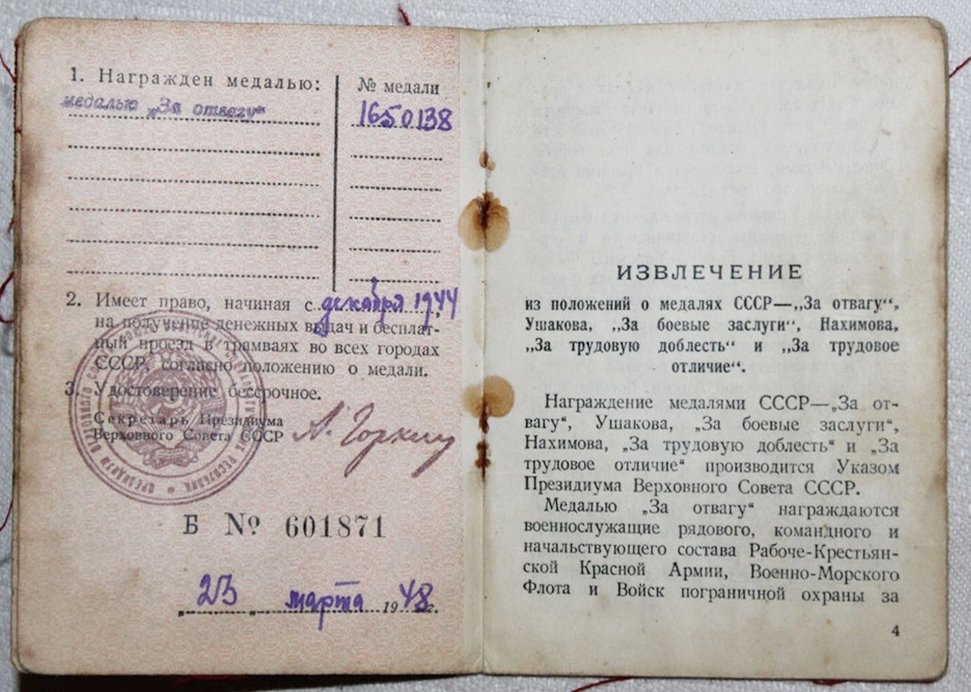 1. Награжден медалью:
№ медали
медалью „За отвагу“
1650138
2. Имеет право, начиная с декабря 1944
на получение денежных выдач и бесплат-
ный проезд в трамваях во всех городах
СССР, согласно положению о медали.
3. Удостоверение бессрочное.
Секретарь Президиума
Верховного Совета СССР
А. Горкин
Б № 601871
„23“ марта 1948 г.
ИЗВЛЕЧЕНИЕ
из положений о медалях СССР—„За отвагу“,
Ушакова, „За боевые заслуги“, Нахимова,
„За трудовую доблесть“ и „За трудовое
отличие“.
Награждение медалями СССР—„За от-
вагу“, Ушакова, „За боевые заслуги“,
Нахимова, „За трудовую доблесть“ и „За
трудовое отличие“ производится Указом
Президиума Верховного Совета СССР.
Медалью „За отвагу“ награждаются
военнослужащие рядового, командного и
начальствующего состава Рабоче-Крестьян-
ской Красной Армии, Военно-Морского
Флота и Войск пограничной охраны за
4